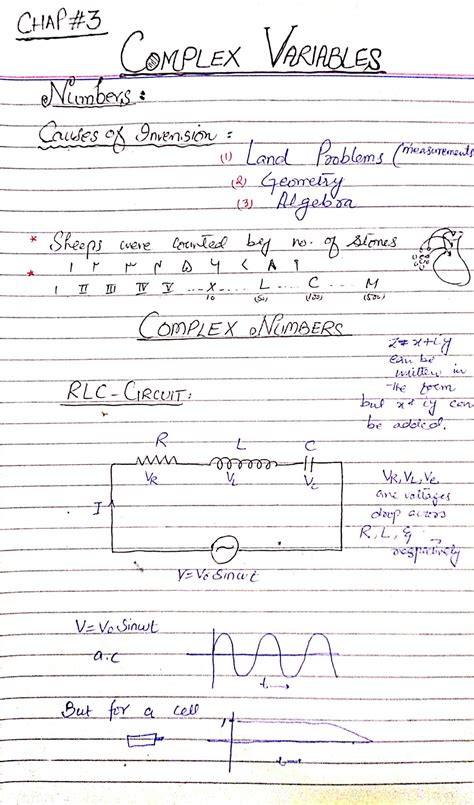 CHAP #3
COMPLEX VARIABLES
Numbers:
Causes of Invension:
(1) Land Problems (measurements
(2) Geometry
(3) Algebra
* Sheeps were counted by no. of stones
*
I II III IV V ... X ... L ... C ... M
10 (50) (100) (500)
COMPLEX NUMBERS
z = x+iy
can be
written in
the form
but x & iy can
be added.
RLC-CIRCUIT:
R L C
VR VL VC
I
V=V₀ Sinωt
VR, VL, VC
are voltages
drop across
R, L, C
respectively
V=V₀ Sinωt
a.c
t→
But for a cell
t→